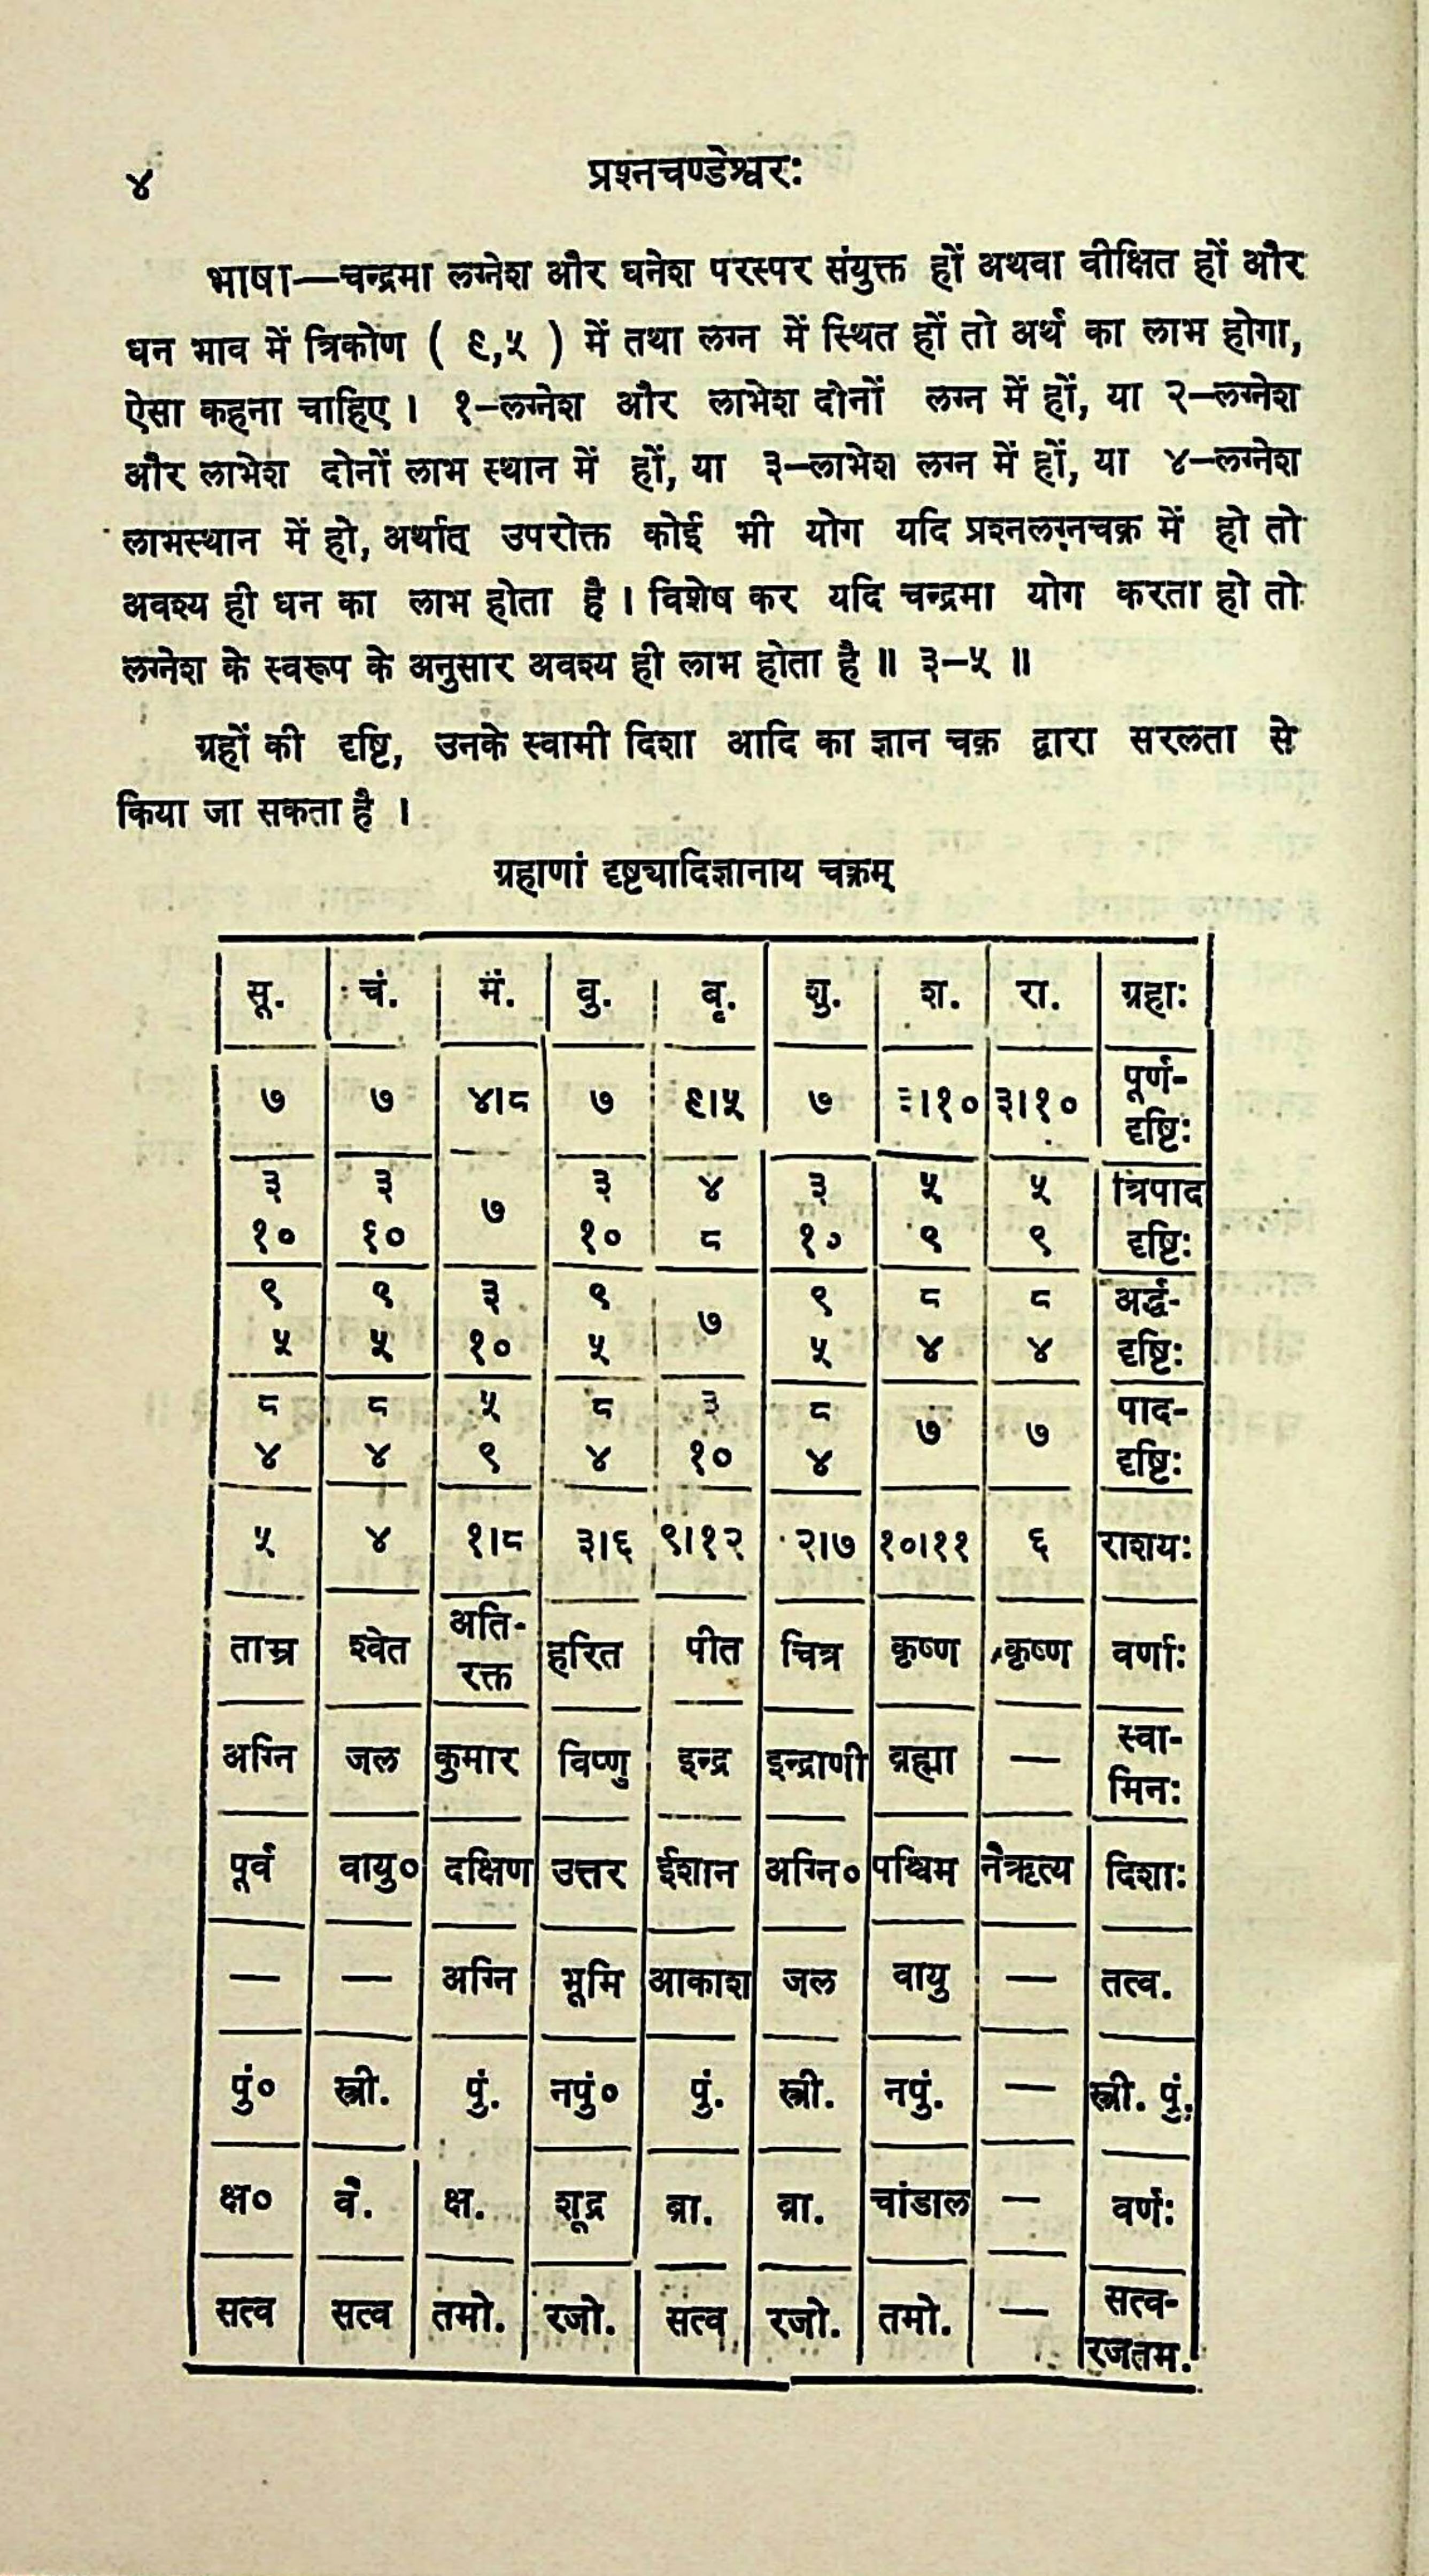 ४ प्रश्नचण्डेश्वरः
भाषा—चन्द्रमा लग्नेश और धनेश परस्पर संयुक्त हों अथवा वीक्षित हों और
धन भाव में त्रिकोण ( ९,५ ) में तथा लग्न में स्थित हों तो अर्थ का लाभ होगा,
ऐसा कहना चाहिए। १–लग्नेश और लाभेश दोनों लग्न में हों, या २–लग्नेश
और लाभेश दोनों लाभ स्थान में हों, या ३–लाभेश लग्न में हों, या ४–लग्नेश
लाभस्थान में हो, अर्थात् उपरोक्त कोई भी योग यदि प्रश्नलग्नचक्र में हो तो
अवश्य ही धन का लाभ होता है। विशेष कर यदि चन्द्रमा योग करता हो तो
लग्नेश के स्वरूप के अनुसार अवश्य ही लाभ होता है॥ ३–५ ॥
ग्रहों की दृष्टि, उनके स्वामी दिशा आदि का ज्ञान चक्र द्वारा सरलता से
किया जा सकता है।
ग्रहाणां दृष्ट्यादिज्ञानाय चक्रम्
सू. चं. मं. बु. बृ. शु. श. रा. ग्रहाः
७ ७ ४।८ ७ ९।५ ७ ३।१० ३।१० पूर्ण-
दृष्टिः
३ ३ ७ ३ ४ ३ ५ ५ त्रिपाद
१० १० १० ८ १० ९ ९ दृष्टिः
९ ९ ३ ९ ७ ९ ८ ८ अर्द्ध-
५ ५ १० ५ ५ ४ ४ दृष्टिः
८ ८ ५ ८ ३ ८ ७ ७ पाद-
४ ४ ९ ४ १० ४ दृष्टिः
५ ४ १।८ ३।६ ९।१२ २।७ १०।११ ६ राशयः
ताम्र श्वेत अति- हरित पीत चित्र कृष्ण कृष्ण वर्णाः
रक्त
अग्नि जल कुमार विष्णु इन्द्र इन्द्राणी ब्रह्मा — स्वा-
मिनः
पूर्व वायु० दक्षिण उत्तर ईशान अग्नि० पश्चिम नैऋत्य दिशाः
— — अग्नि भूमि आकाश जल वायु — तत्व.
पुं० स्त्री. पुं. नपुं० पुं. स्त्री. नपुं. — स्त्री. पुं.
क्ष० वै. क्ष. शूद्र ब्रा. ब्रा. चांडाल — वर्णः
सत्व सत्व तमो. रजो. सत्व रजो. तमो. — सत्व-
रजतम.